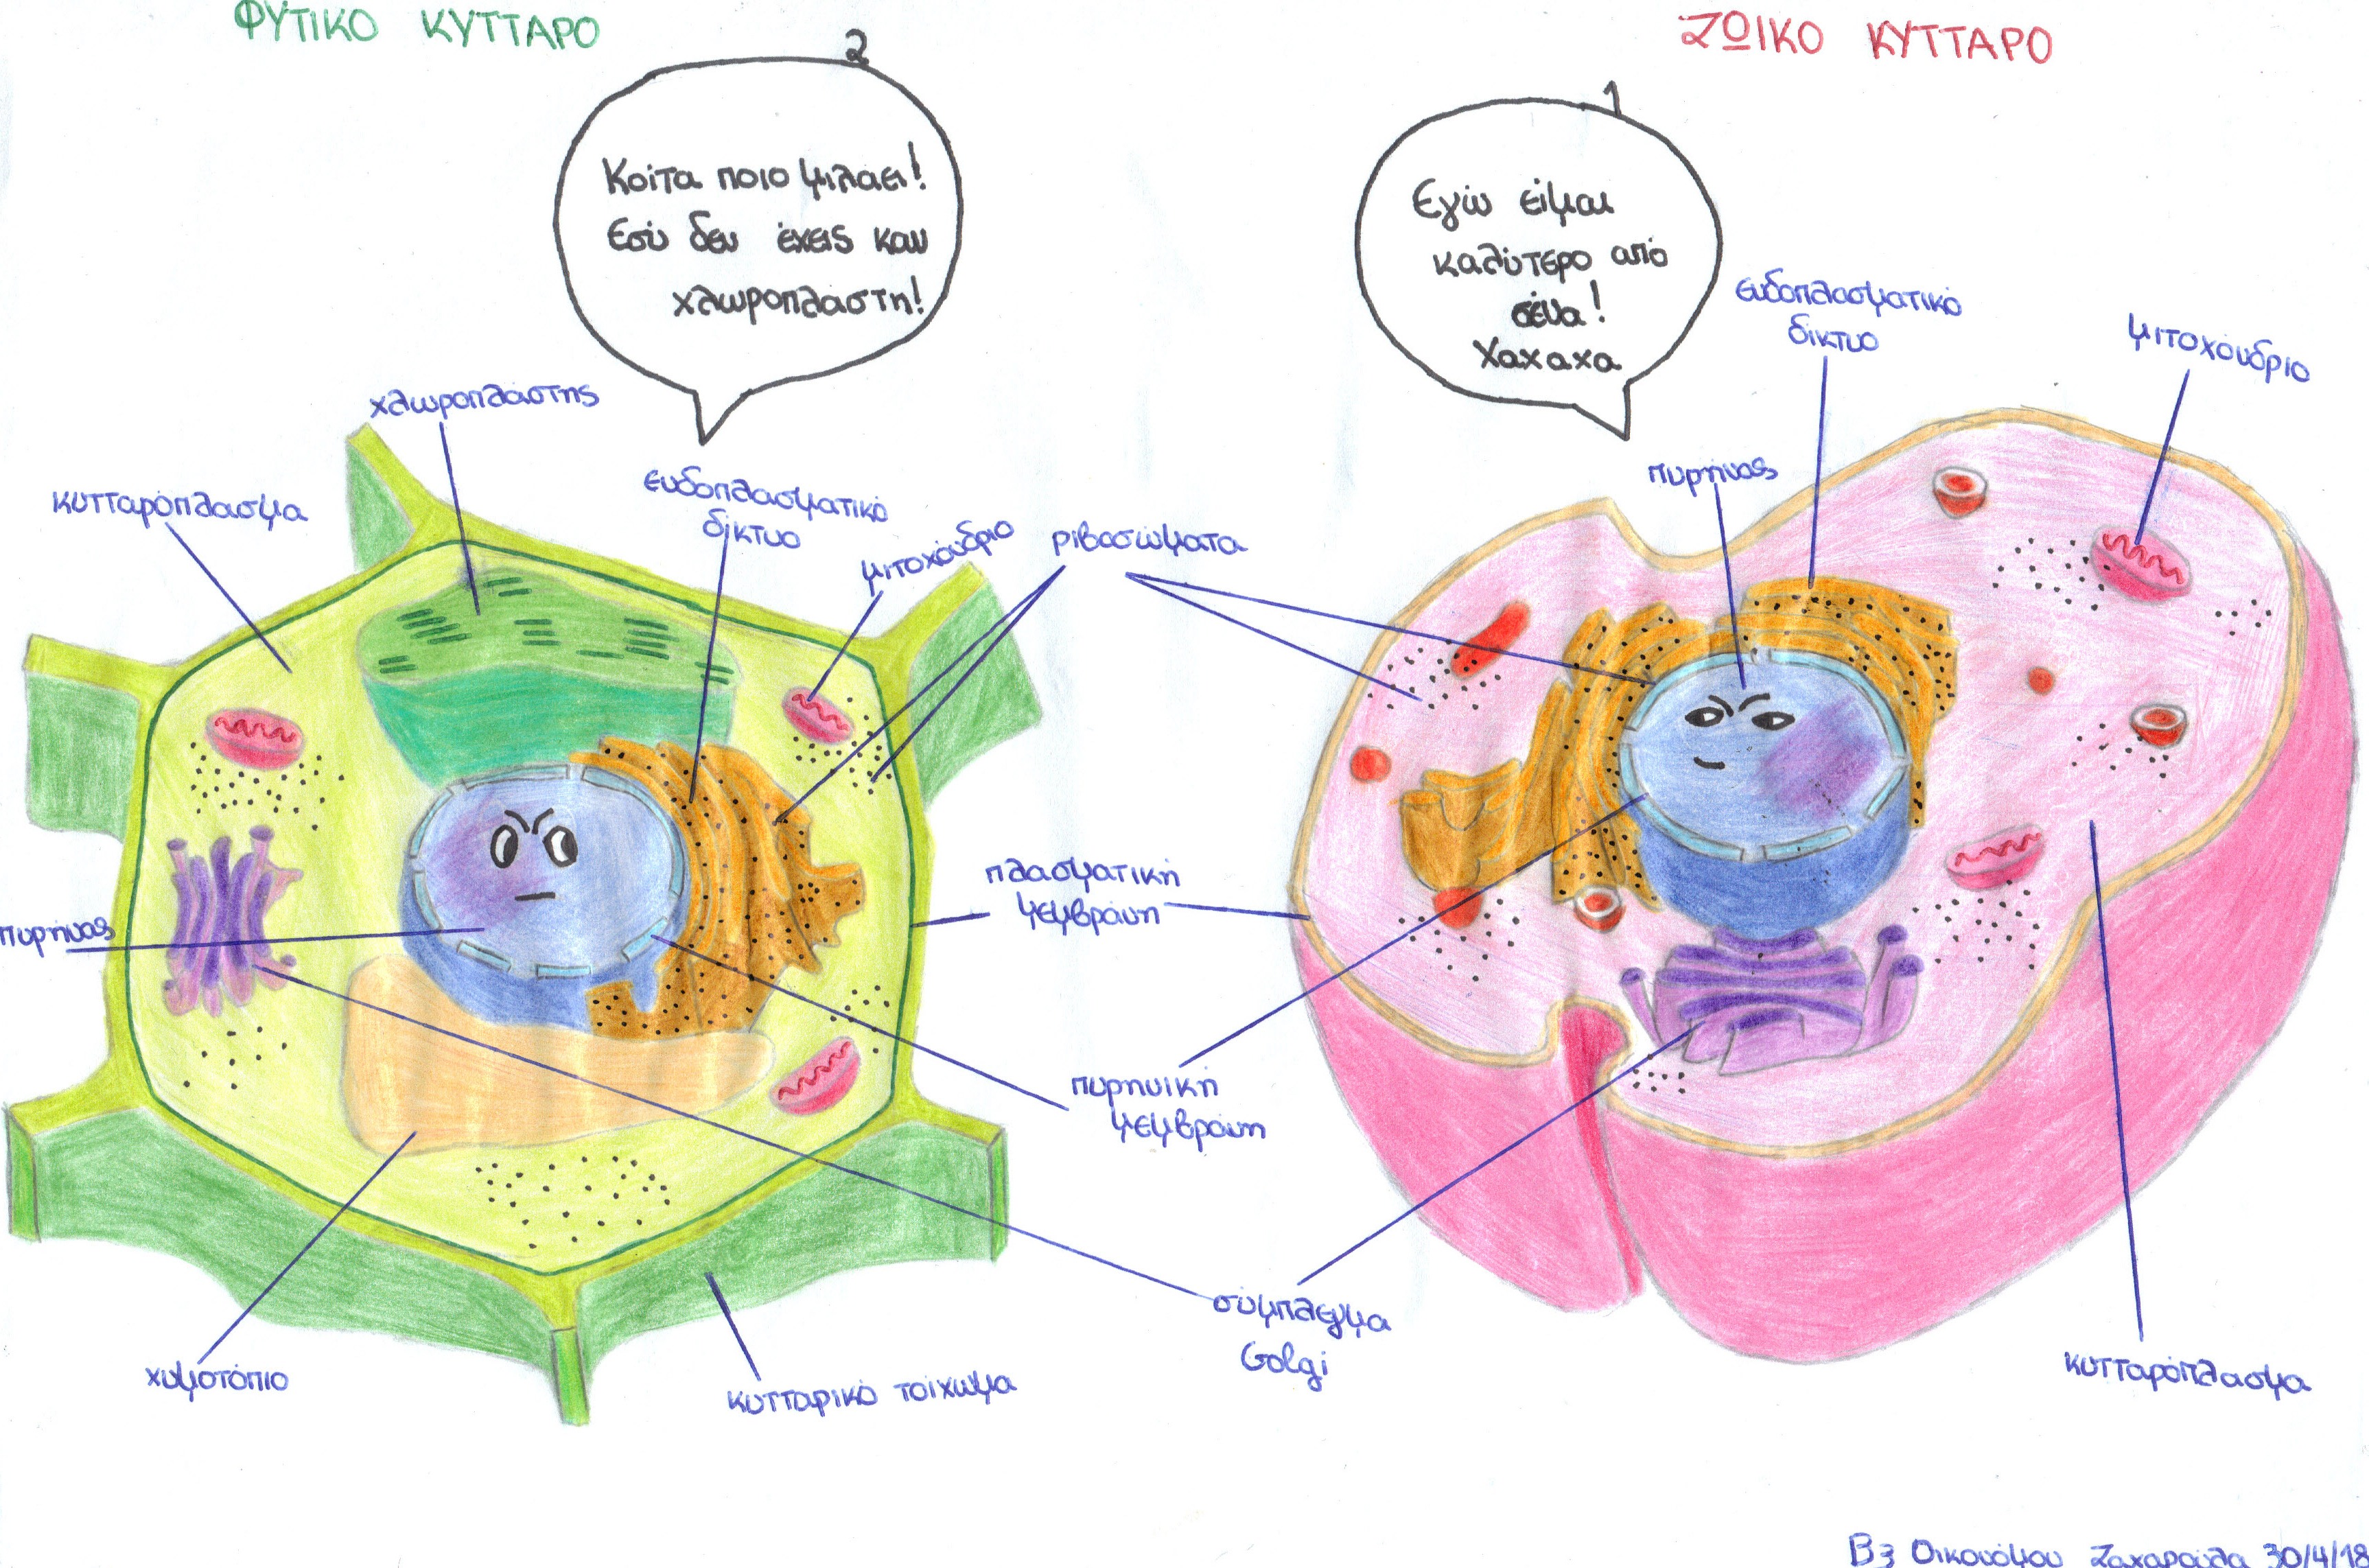 ΦΥΤΙΚΟ ΚΥΤΤΑΡΟ
ΖΩΙΚΟ ΚΥΤΤΑΡΟ
2
Κοίτα ποιο μιλάει!
Εσύ δεν έχεις καν
χλωροπλάστη!
1
Εγώ είμαι
καλύτερο από
σένα!
Χαχαχα
χλωροπλάστης
κυτταρόπλασμα
ενδοπλασματικό
δίκτυο
μιτοχόνδριο
ριβοσώματα
πυρήνας
ενδοπλασματικό
δίκτυο
μιτοχόνδριο
πυρήνας
πλασματική
μεμβράνη
πυρηνική
μεμβράνη
σύμπλεγμα
Golgi
χυμοτόπιο
κυτταρικό τοίχωμα
κυτταρόπλασμα
Β3 Οικονόμου Ζαχαρούλα 30/4/18